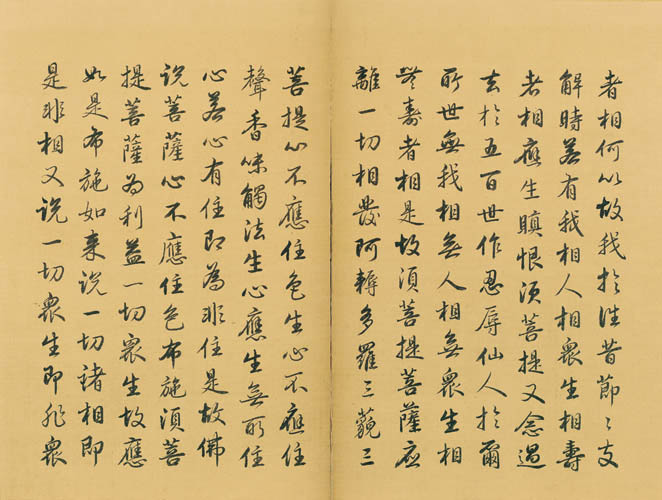 者相何以故我於往昔節〻支
解時若有我相人相衆生相壽
者相應生瞋恨須菩提又念過
去於五百世作忍辱仙人於爾
所世無我相無人相無衆生相
無壽者相是故須菩提菩薩應
離一切相發阿耨多羅三藐三
菩提心不應住色生心不應住
聲香味觸法生心應生無所住
心若心有住即為非住是故佛
說菩薩心不應住色布施須菩
提菩薩為利益一切衆生故應
如是布施如来說一切諸相即
是非相又說一切衆生即非衆